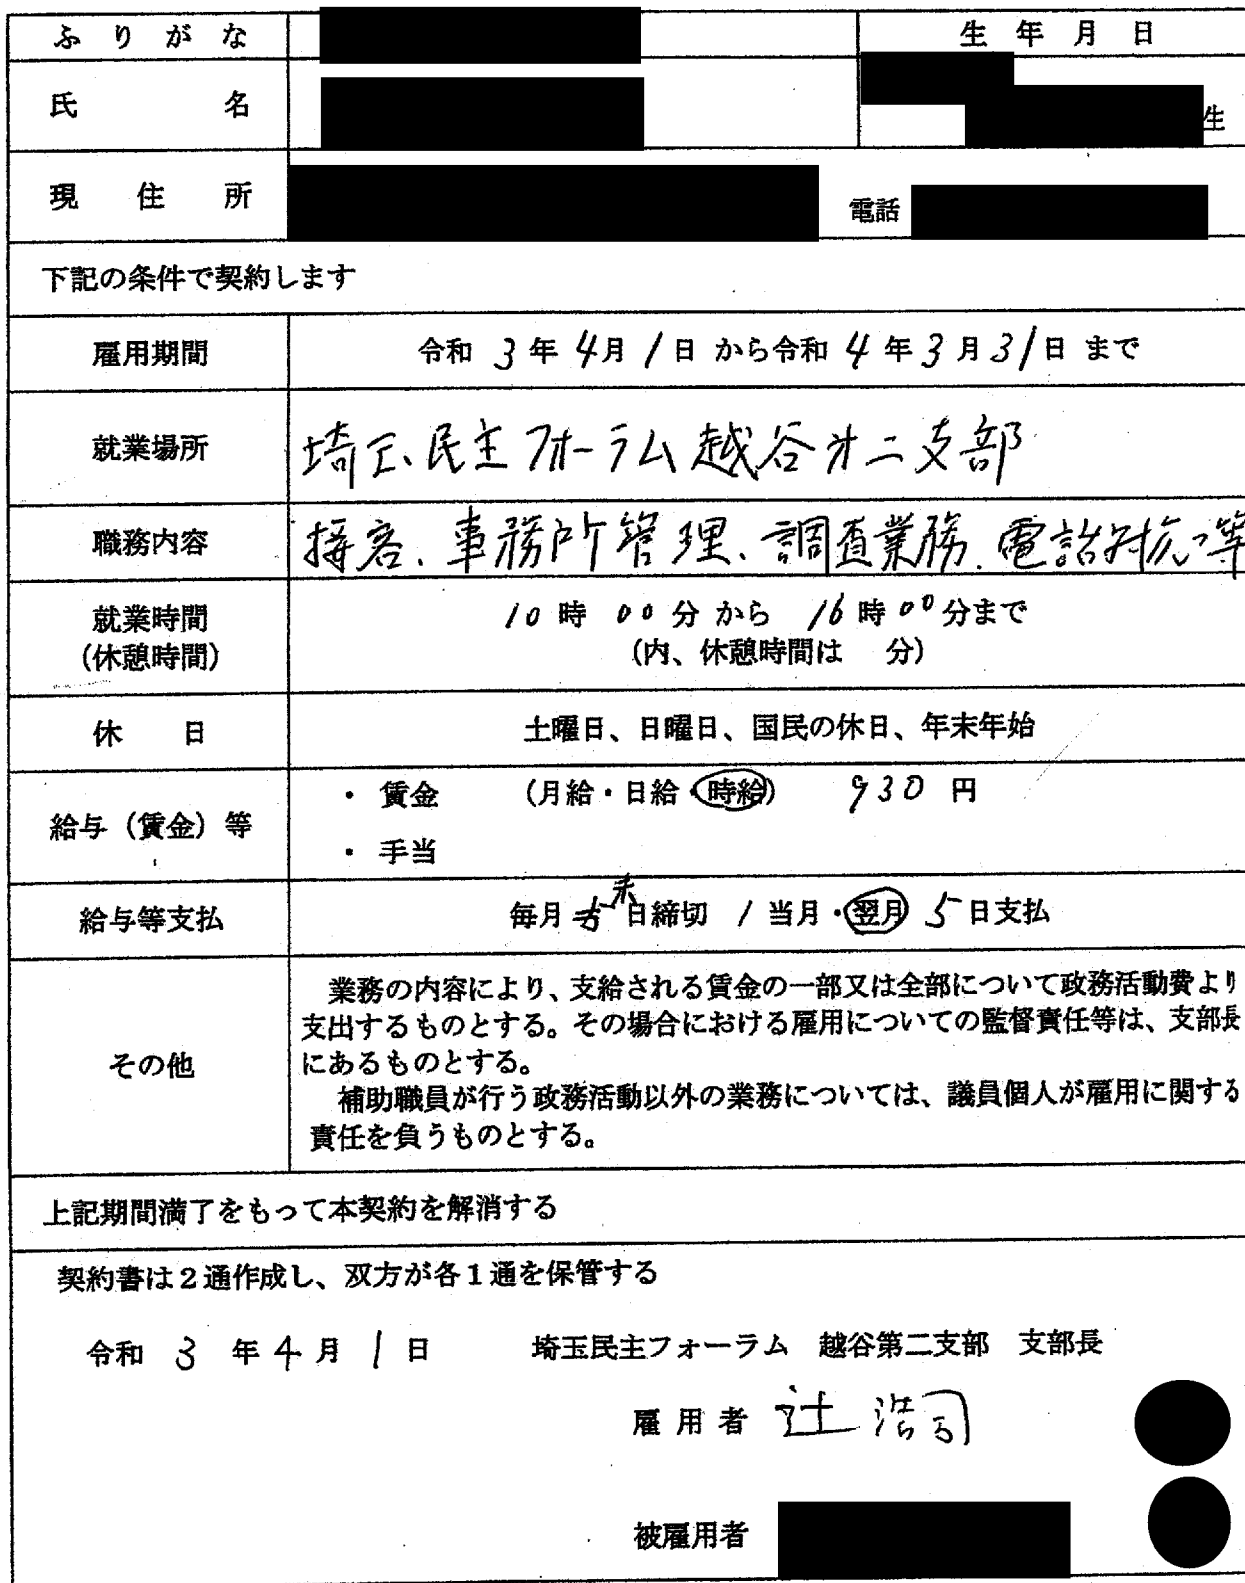 ふりがな
生年月日
氏名
生
現住所
電話
下記の条件で契約します
雇用期間
令和 3年 4月 1日 から令和 4年 3月 31日 まで
就業場所
埼玉民主フォーラム越谷才二支部
職務内容
接客、事務所管理、調査業務、電話対応等
就業時間
(休憩時間)
10時 00分 から 16時 00分まで
(内、休憩時間は 分)
休日
土曜日、日曜日、国民の休日、年末年始
給与(賃金)等
・ 賃金 (月給・日給・時給) 930 円
・ 手当
給与等支払
毎月 末 日締切 / 当月・翌月 5日支払
その他
業務の内容により、支給される賃金の一部又は全部について政務活動費より
支出するものとする。その場合における雇用についての監督責任等は、支部長
にあるものとする。
補助職員が行う政務活動以外の業務については、議員個人が雇用に関する
責任を負うものとする。
上記期間満了をもって本契約を解消する
契約書は2通作成し、双方が各1通を保管する
令和 3 年 4 月 1 日 埼玉民主フォーラム 越谷第二支部 支部長
雇用者 辻 浩司
被雇用者